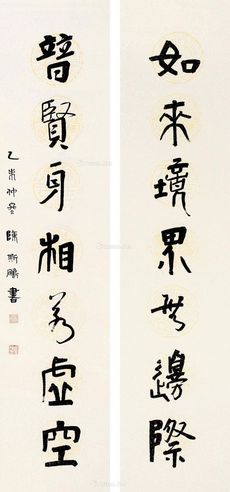 如來境界無邊際
普賢身相若虛空
乙未仲冬 陳斯鵬書